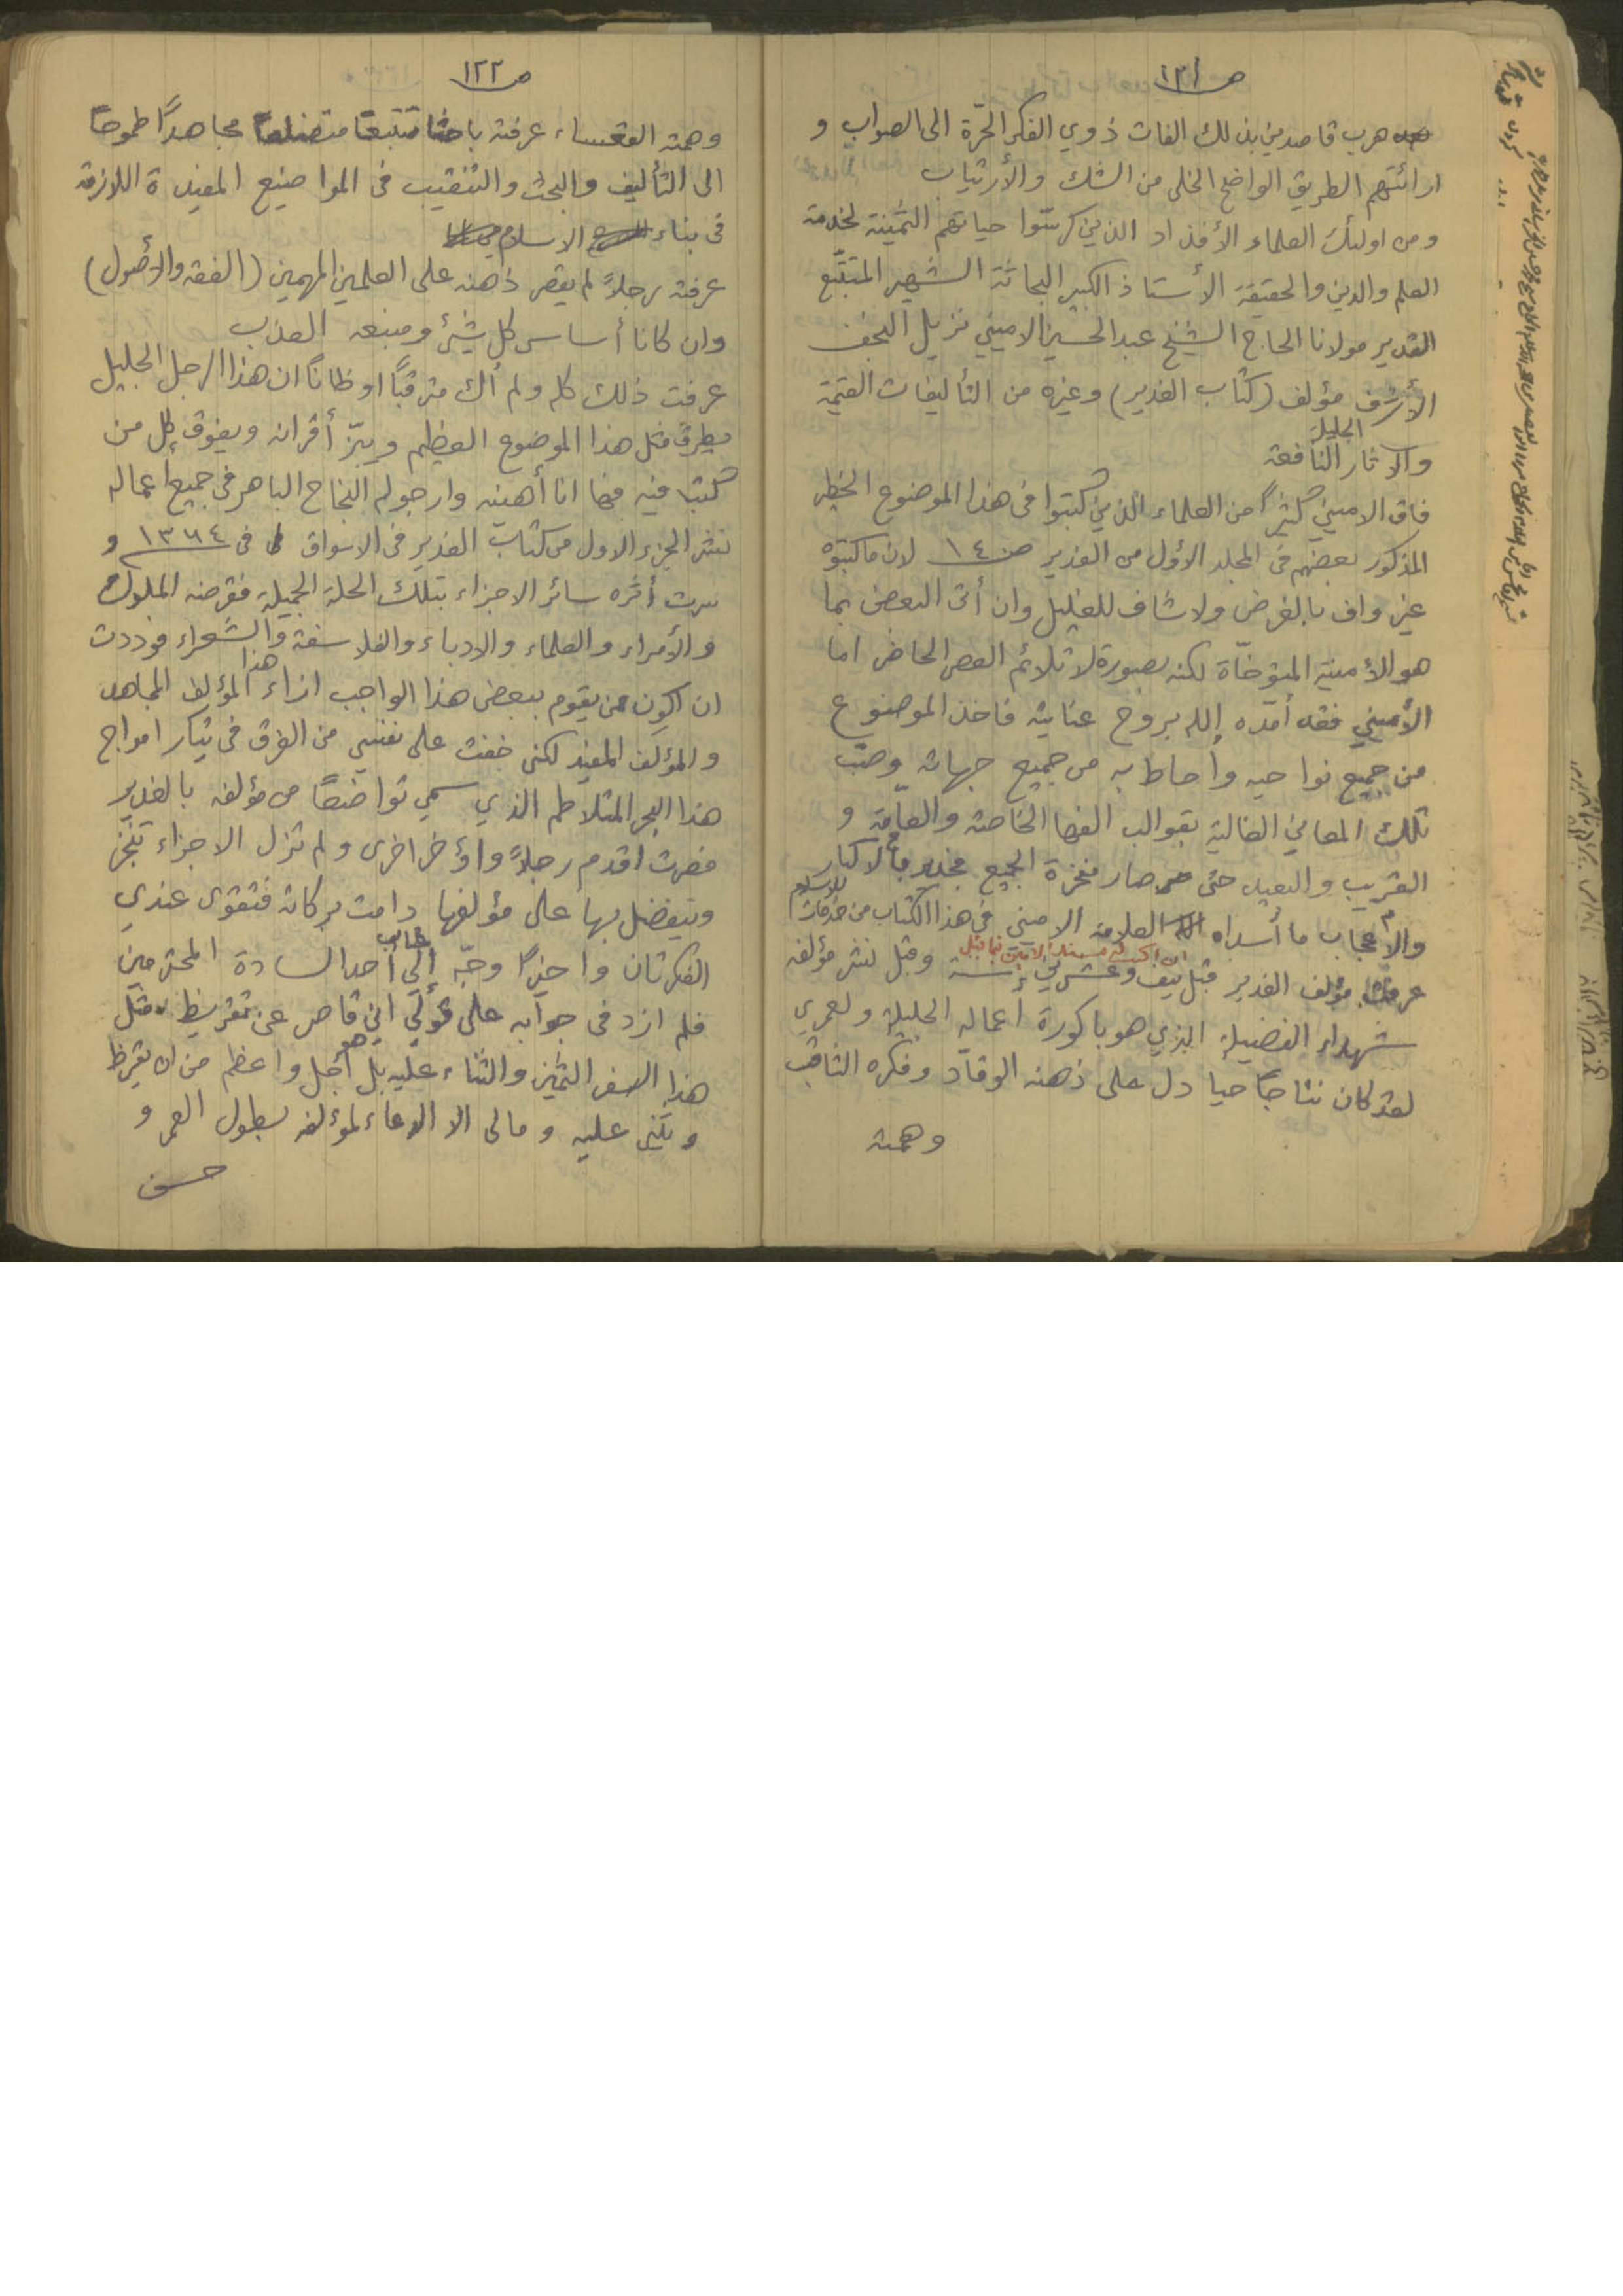 ص ١٢١
هرب قاصدين بذلك الفات ذوي الفكر الحرّة الى الصواب و
ارائتهم الطريق الواضح الخلى من الشك والأرتياب
ومن اولئك العلماء الأفذاد الذين كرسوا حياتهم الثمينة لخدمة
العلم والدين والحقيقة الأستاذ الكبير البحاثة الشهير المتتبّع
القدير مولانا الحاج الشيخ عبد الحسين الاميني نزيل النجف
الأشرف مؤلف (كتاب الغدير) وغيره من التأليفات القيمة
والآثار الجليلة النافعة
فاق الاميني كثيراً من العلماء الذين كتبوا في هذا الموضوع الخطير
المذكور بعضهم في المجلد الأول من الغدير ص ١٤ لان ما كتبوه
غير واف بالغرض ولا شاف للغليل وان أتى البعض بما
هو الأمنية المتوخّاة لكنه بصورة لا تلائم العصر الحاضر اما
الأميني فقد أمده الله بروح عنايته فاخذ الموضوع
من جميع نواحيه وأحاط به من جميع جهاته وصبّ
تلك المعاني الغالية بقوالب الفها الخاصة والعامّة و
القريب والبعيد حتى صار مفخرة الجميع فجدير بالاكبار
والاعجاب ما أسداه العلامة الاميني في هذا الكتاب من خدمات للاسلام
عرفت مؤلف الغدير قبل نيف وعشرين سنة وقبل نشر مؤلفه
شهداء الفضيلة الذي هو باكورة اعماله الجليلة ولعمري
لقد كان نتاجاً حيا دل على ذهنه الوقاد وفكره الثاقب
وهمته
ص ١٢٢
وهمته القعساء عرفته باحثا متتبعا متضلعاً مجاهداً طموحاً
الى التأليف والبحث والتنقيب في المواضيع المفيدة اللازمة
في بناء الاسلام
عرفته رجلاً لم يقصر ذهنه على العلمين المهمين (الفقه والأصول)
وان كانا أساس كل شيئ ومنبعه العذب
عرفت ذلك كله ولم أك مترقباً او ظاناً ان هذا الرجل الجليل
يطرق مثل هذا الموضوع العظيم ويبزّ أقرانه ويفوق كل من
كتب فيه فها انا أهنيه وارجو له النجاح الباهر في جميع اعماله
نشر الجزء الاول من كتاب الغدير في الاسواق في ١٣٦٤ و
سرت أثره سائر الاجزاء بتلك الحلة الجميلة فقرضه الملوك
والأمراء والعلماء والادباء والفلاسفة والشعراء فوددت
ان اكون من يقوم ببعض هذا الواجب ازاء هذا المؤلف المجاهد
والمؤلف المفيد لكني خفت على نفسي من الغرق في تيار امواج
هذا البحر المتلاطم الذي سمي تواضعاً من مؤلفه بالغدير
فصرت اقدم رجلاً واؤخر اخرى ولم تزل الاجزاء تنجز
ويتفضل بها على مؤلفها دامت بركاته فتقوى عندي
الفكرتان واخيراً وجّه إلي عتاب أحد السادة المحترمين
فلم ازد في جوابه على قولي اني قاصر عن تقريظ مثل
هذا السفر الثمين والثناء عليه بل هو أجل واعظم من ان يقرظ
ويثنى عليه ومالى الا الدعاء لمؤلفه بطول العمر و
حسن